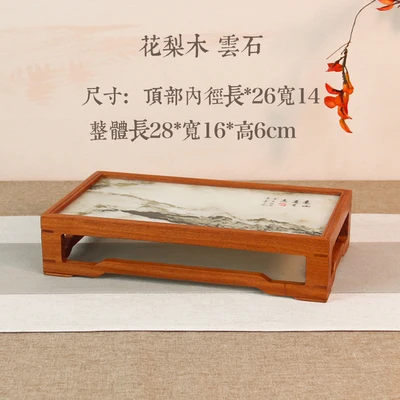 花梨木 雲石
尺寸：頂部內徑長*26寬14
整體長28*寬16*高6cm